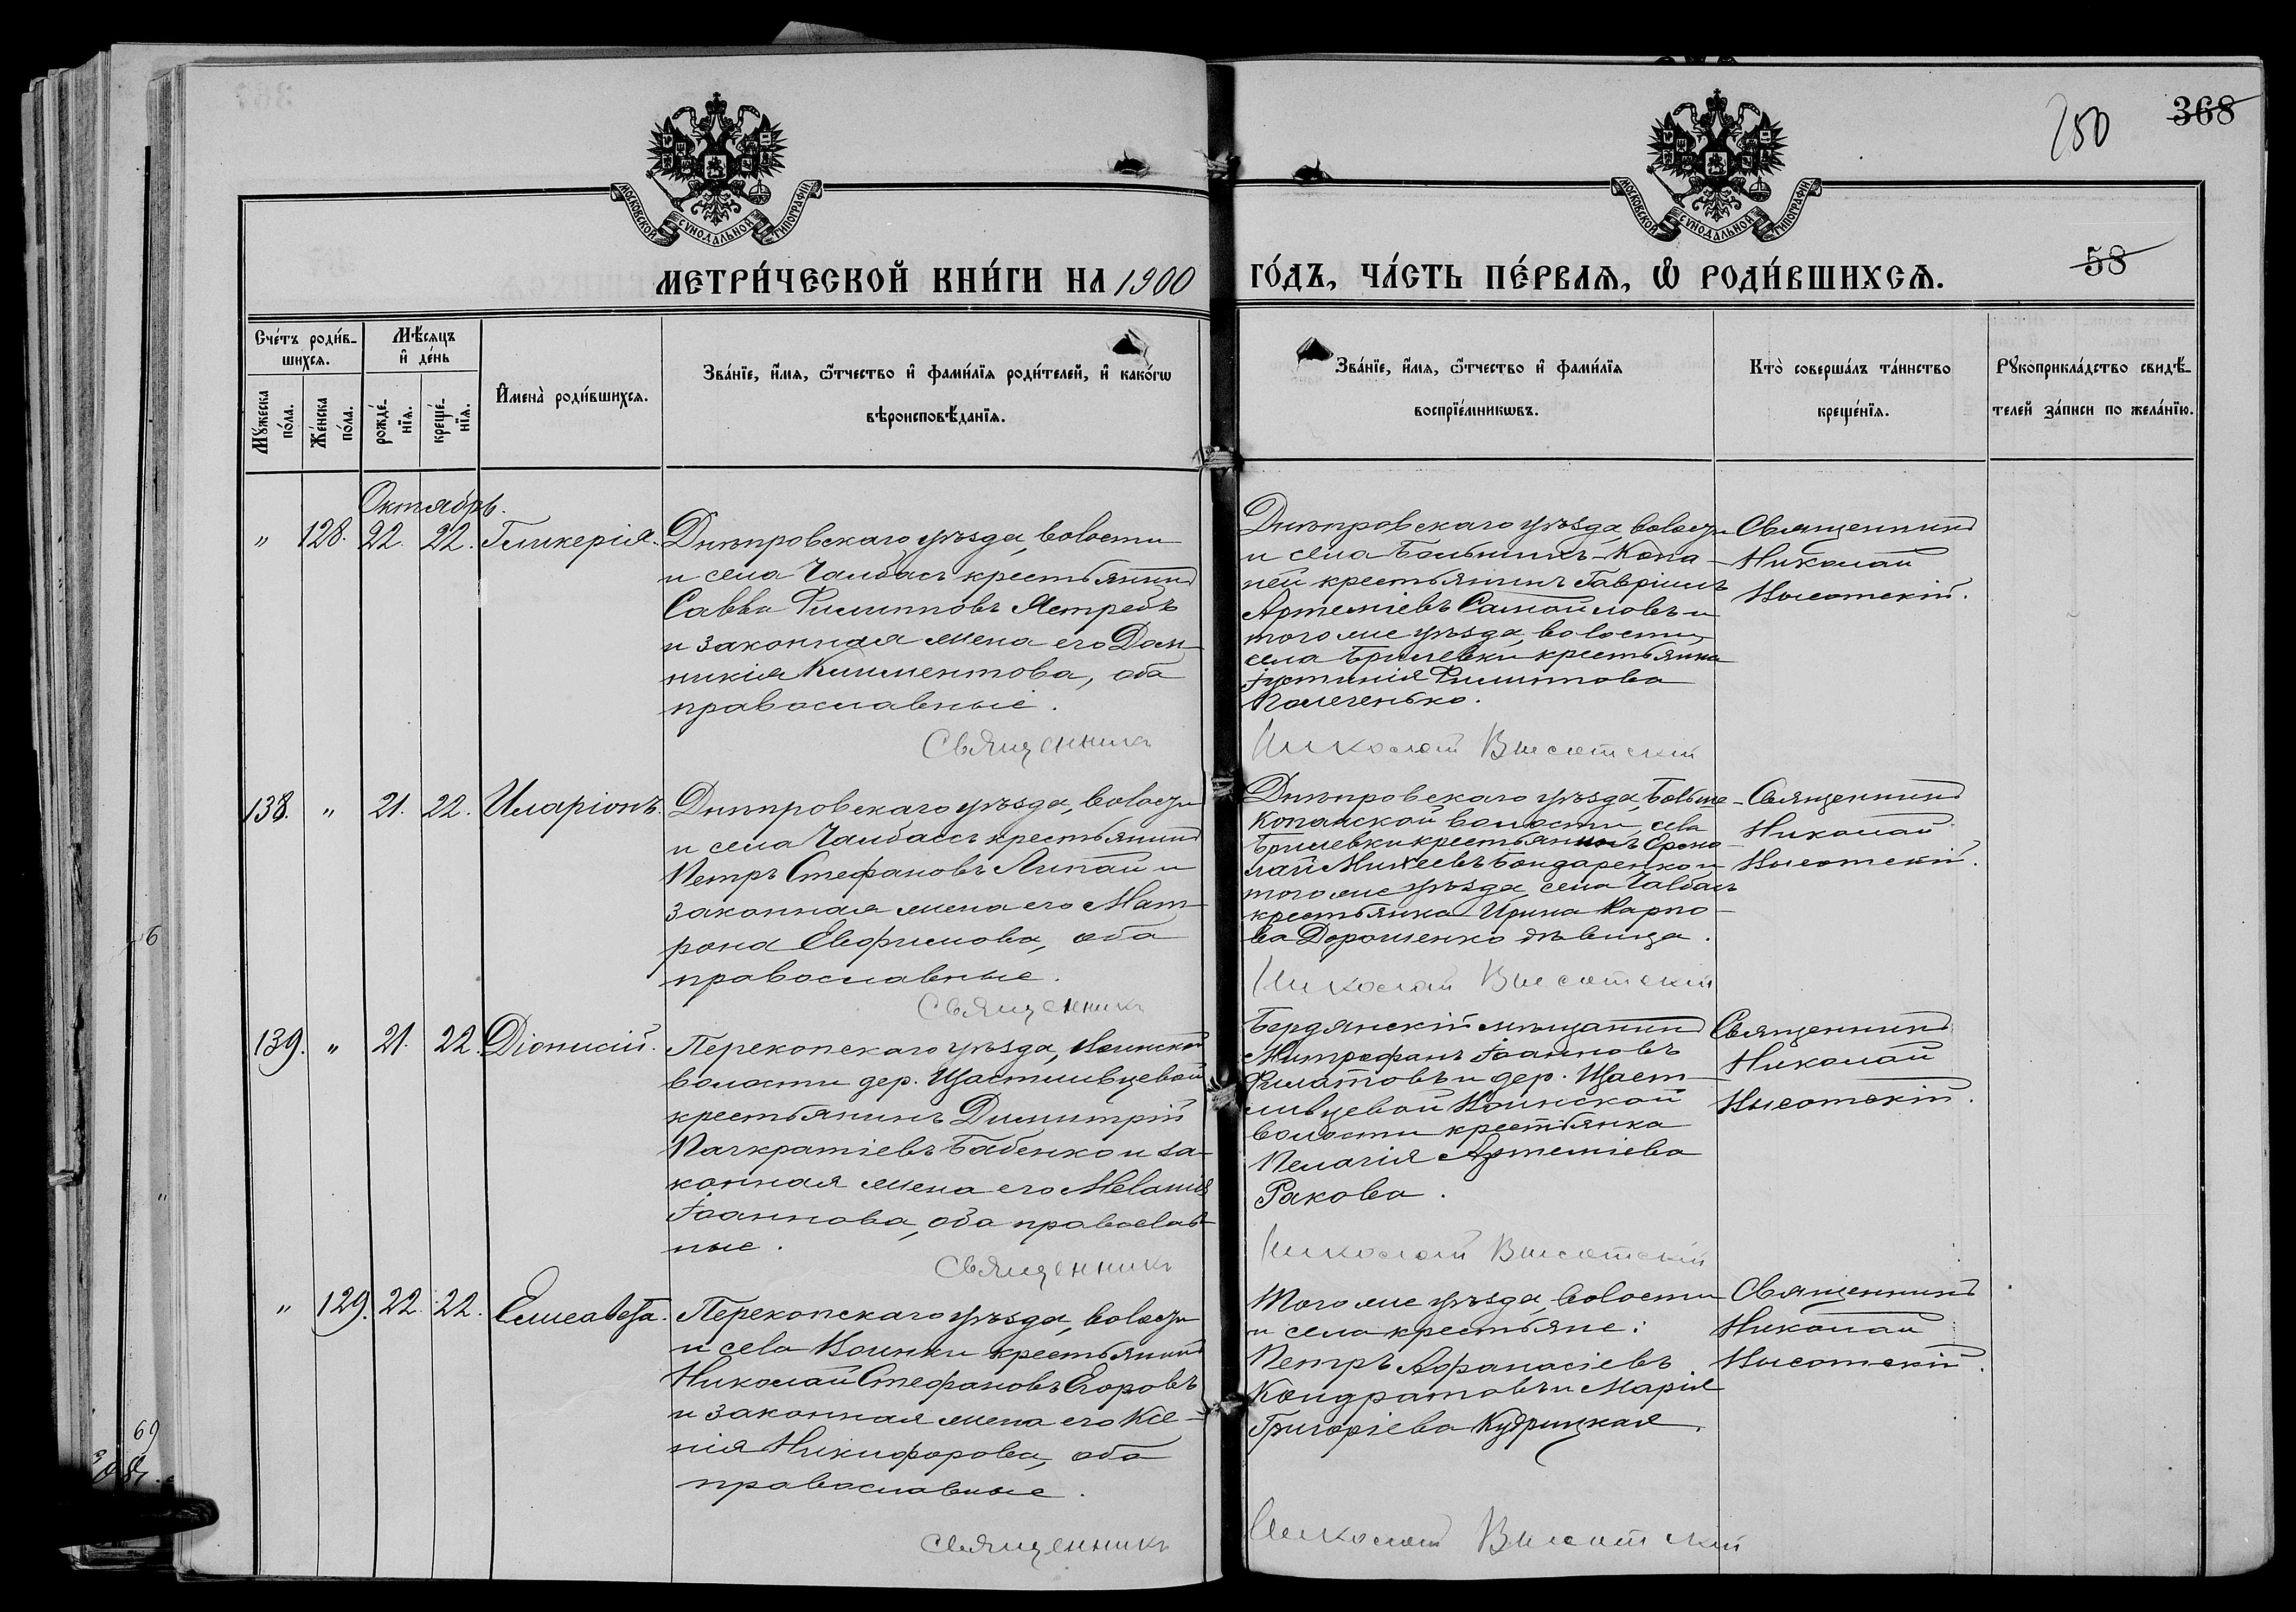 250
368
МОСКОВСКОЙ СѴНОДАЛЬНОЙ ТИПОГРАФІИ
МОСКОВСКОЙ СѴНОДАЛЬНОЙ ТИПОГРАФІИ
58
МЕТРИ́ЧЕСКОЙ КНИ́ГИ НА 1900 ГО́ДЪ, ЧА́СТЬ ПЕ́РВАѦ, Ѽ РОДИ́ВШИХСѦ.
Счётъ роди́в-
шихсѧ.
Мꙋ́жеска по́ла.
Же́нска по́ла.
Мѣ́сѧцъ
и҆ де́нь
рожде́-
нїѧ.
креще́-
нїѧ.
И҆мена̀ роди́вшихсѧ.
Зва́нїе, и҆́мѧ, ѻ҆́тчество и҆ фами́лїѧ роди́телей, и҆ како́гѡ
вѣроисповѣ́данїѧ.
Зва́нїе, и҆́мѧ, ѻ҆́тчество и҆ фами́лїѧ
воспрїе́мникѡвъ.
Кто̀ соверша́лъ та́инство
креще́нїѧ.
Рꙋкоприкла́дство свидѣ́-
телей за́писи по жела́нїю.
Октябрь.
" 128. 22. 22. Гликерія.
Днѣпровскаго уѣзда, волости
и села Чалбасъ крестьянинъ
Савва Филипповъ Ястребъ
и законная жена его Дом-
никія Климентова, оба
православные.
Священникъ
Днѣпровскаго уѣзда, волости
и села Большихъ-Копа-
ней крестьянинъ Гавріилъ
Артеміевъ Самойловъ и
того же уѣзда, волости,
села Брилевки крестьянка
Іустинія Филиппова
Николай Высотскій
Священникъ
Николай
Высотскій.
138. " 21. 22. Иларіонъ.
Днѣпровскаго уѣзда, волости
и села Чалбасъ крестьянинъ
Петръ Стефановъ Липай и
законная жена его Мат-
рона Евфимова, оба
православные.
Священникъ
Днѣпровскаго уѣзда, Больше-
Копанской волости, села
Брилевки крестьянинъ Ермо-
лай Михеевъ Бондаренко и
того же уѣзда, села Чалбасъ
крестьянка Ирина Карпо-
ва Дорошенко дѣвица.
Николай Высотскій
Священникъ
Николай
Высотскій.
139. " 21. 22. Діонисій.
Перекопскаго уѣзда, Воинской
волости дер. Щастливцевой
крестьянинъ Димитрій
Панкратіевъ Бабенко и за-
конная жена его Меланія
Іоаннова, оба православ-
ные.
Священникъ
Бердянскій мѣщанинъ
Митрофанъ Іоанновъ
Филатовъ и дер. Щаст-
ливцевой Воинской
волости крестьянка
Пелагія Артеміева
Ракова.
Николай Высотскій
Священникъ
Николай
Высотскій.
" 129. 22. 22. Елисавета.
Перекопскаго уѣзда, волости
и села Воинки крестьянинъ
Николай Стефановъ Егоровъ
и законная жена его Ксе-
нія Никифорова, оба
православные.
Священникъ
Того же уѣзда, волости
и села крестьяне:
Петръ Афанасіевъ
Кондратовъ и Марія
Григоріева Кудрицкая.
Николай Высотскій
Священникъ
Николай
Высотскій.
6
69